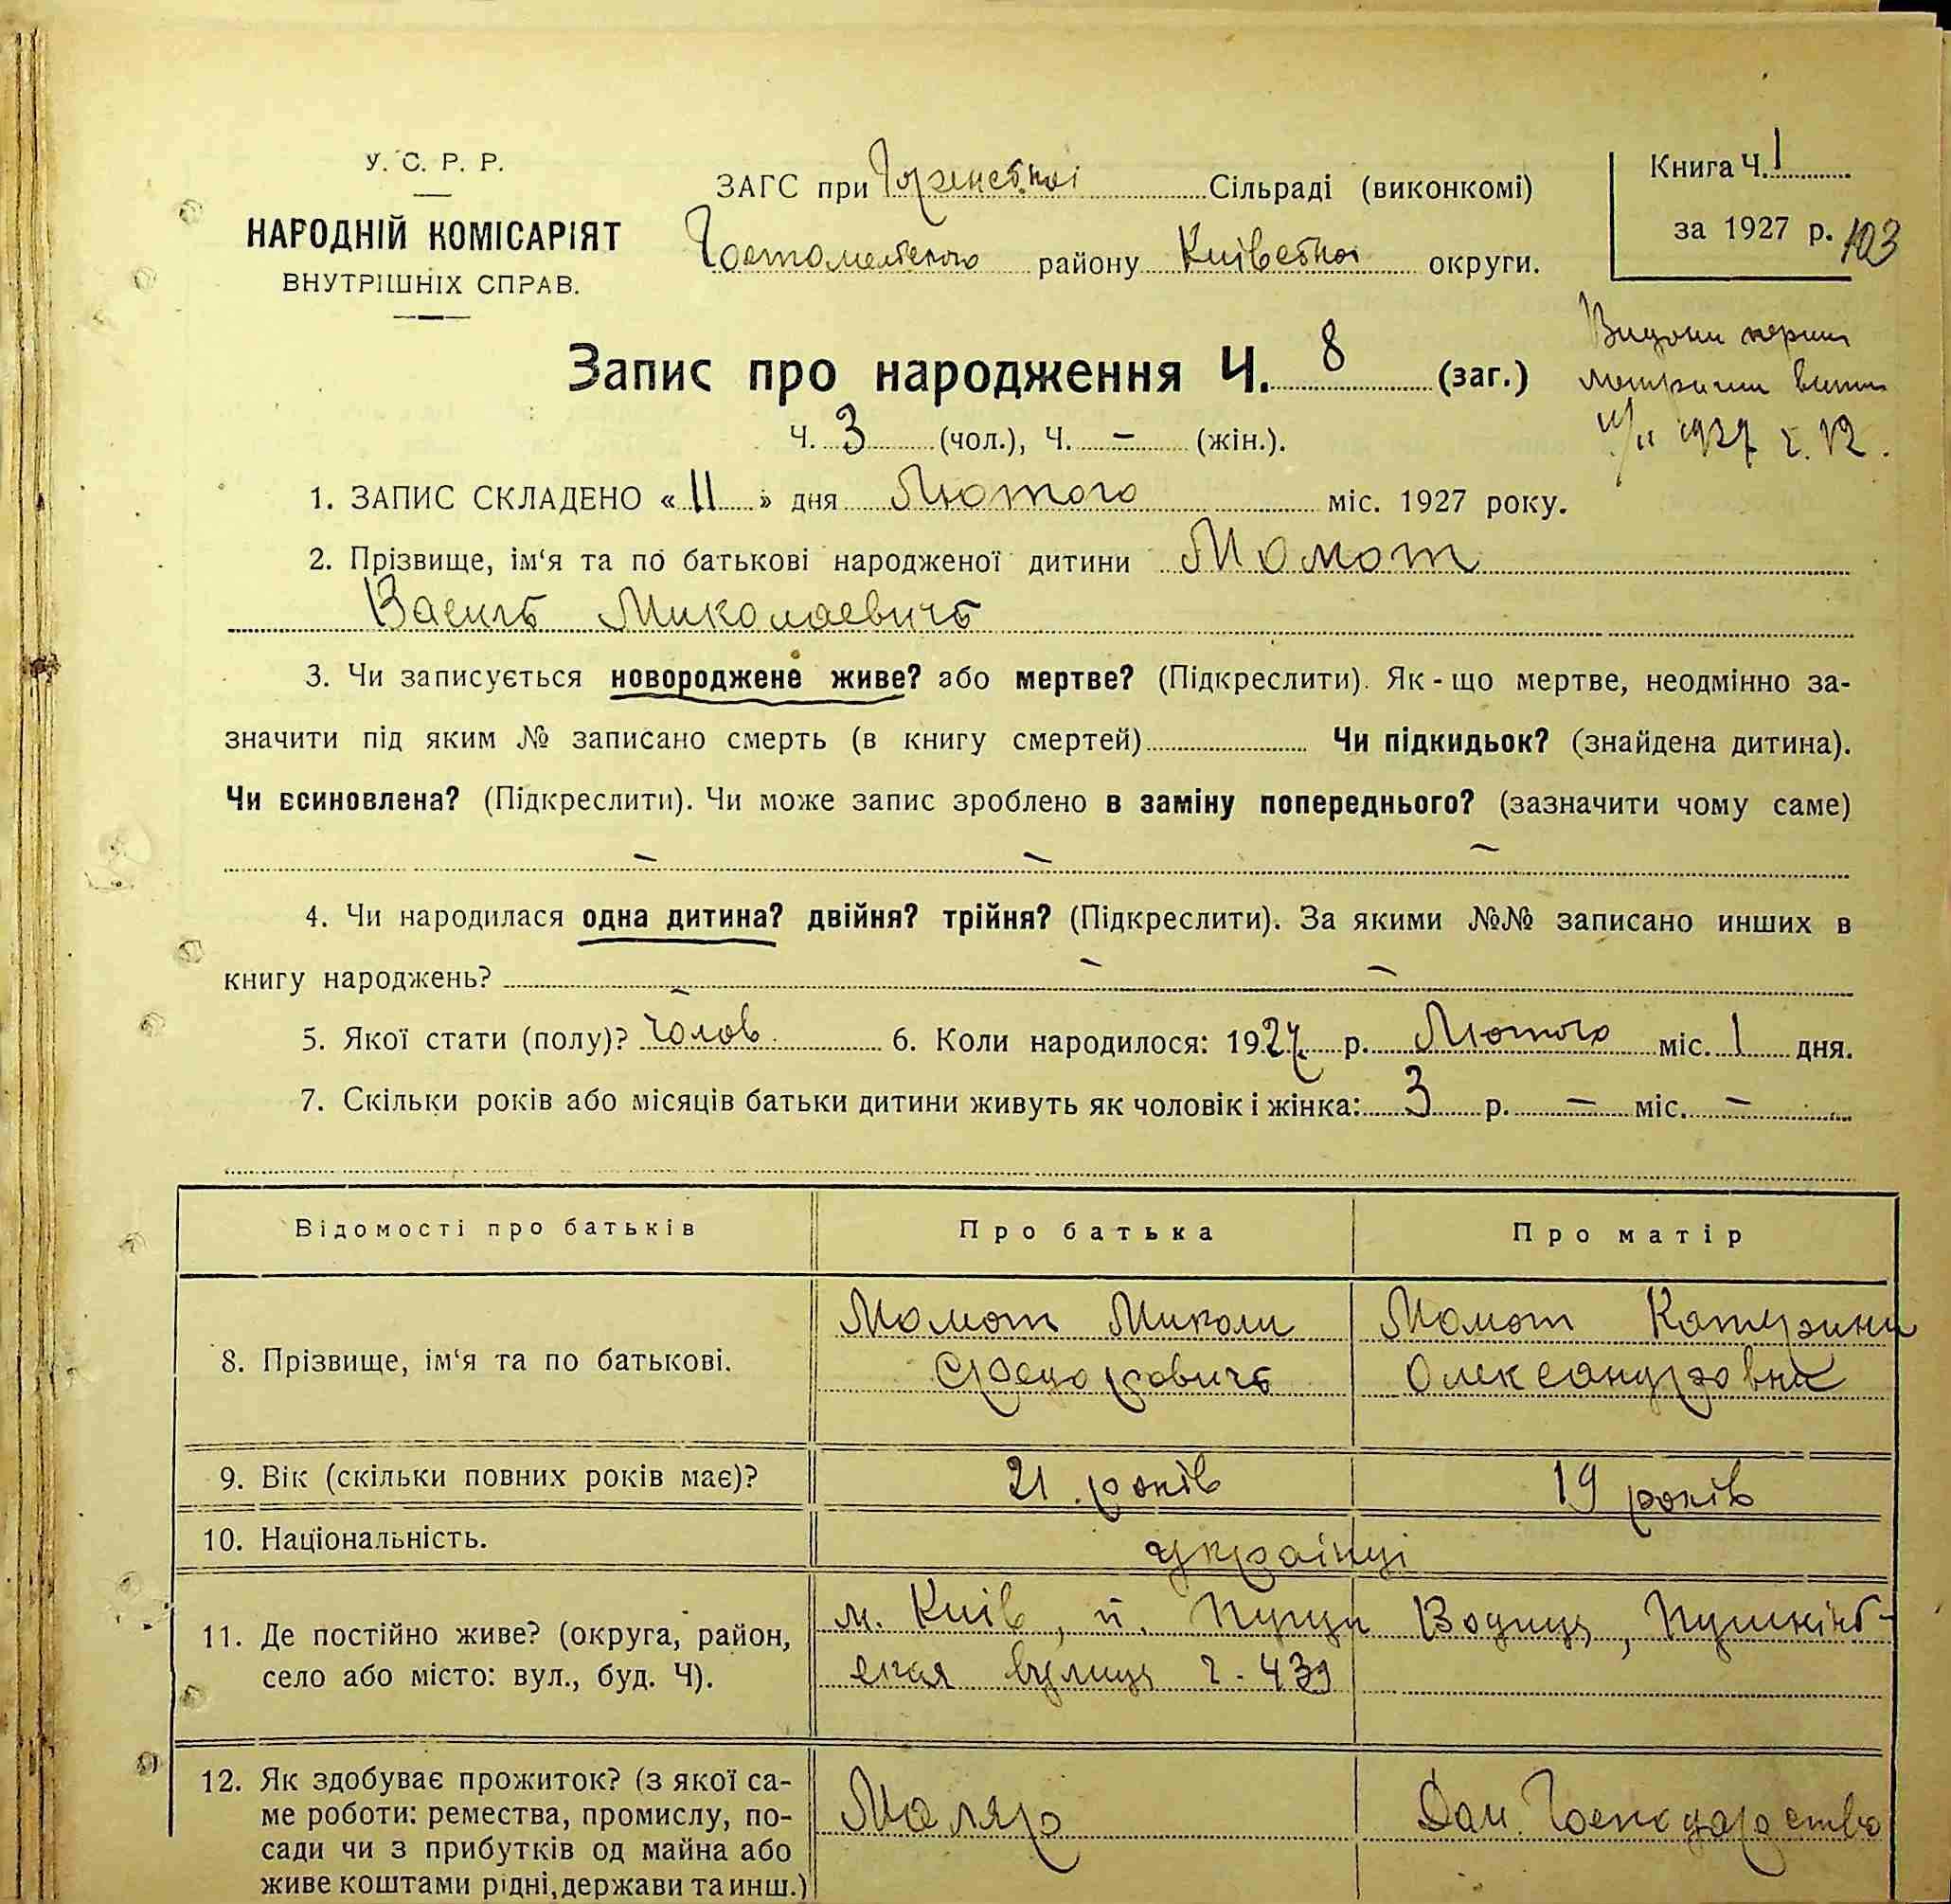 У. С. Р. Р.
НАРОДНІЙ КОМІСАРІЯТ
ВНУТРІШНІХ СПРАВ.
ЗАГС при Сільраді (виконкомі)
Гостомельского району Київської округи.
Книга Ч. 1
за 1927 р. 103
Запис про народження Ч. 8 (заг.)
Ч. 3 (чол.), Ч. – (жін.).
Видани
1927 12.
1. ЗАПИС СКЛАДЕНО «11» дня Лютого міс. 1927 року.
2. Прізвище, ім‘я та по батькові народженої дитини Момот
Василь Миколаевичь
3. Чи записується новороджене живе? або мертве? (Підкреслити). Як-що мертве, неодмінно за-
значити під яким № записано смерть (в книгу смертей) Чи підкидьок? (знайдена дитина).
Чи всиновлена? (Підкреслити). Чи може запис зроблено в заміну попереднього? (зазначити чому саме)
– – –
4. Чи народилася одна дитина? двійня? трійня? (Підкреслити). За якими №№ записано инших в
книгу народжень? – – –
5. Якої стати (полу)? чолов. 6. Коли народилося: 1927 р. Лютого міс. 1 дня.
7. Скільки років або місяців батьки дитини живуть як чоловік і жінка: 3 р. – міс. –
Відомості про батьків Про батька Про матір
8. Прізвище, ім‘я та по батькові.
Момот Миколи
Федоровичь
Момот Катерини
Олександровна
9. Вік (скільки повних років має)? 21 років 19 років
10. Національність. українці
11. Де постійно живе? (округа, район,
село або місто: вул., буд. Ч).
м. Київ, п. Пуща Водиця, Пушкінь-
ская вулиця ч. 439
12. Як здобуває прожиток? (з якої са-
ме роботи: ремества, промислу, по-
сади чи з прибутків од майна або
живе коштами рідні, держави та инш.)
Маляр
Дом. Господарство